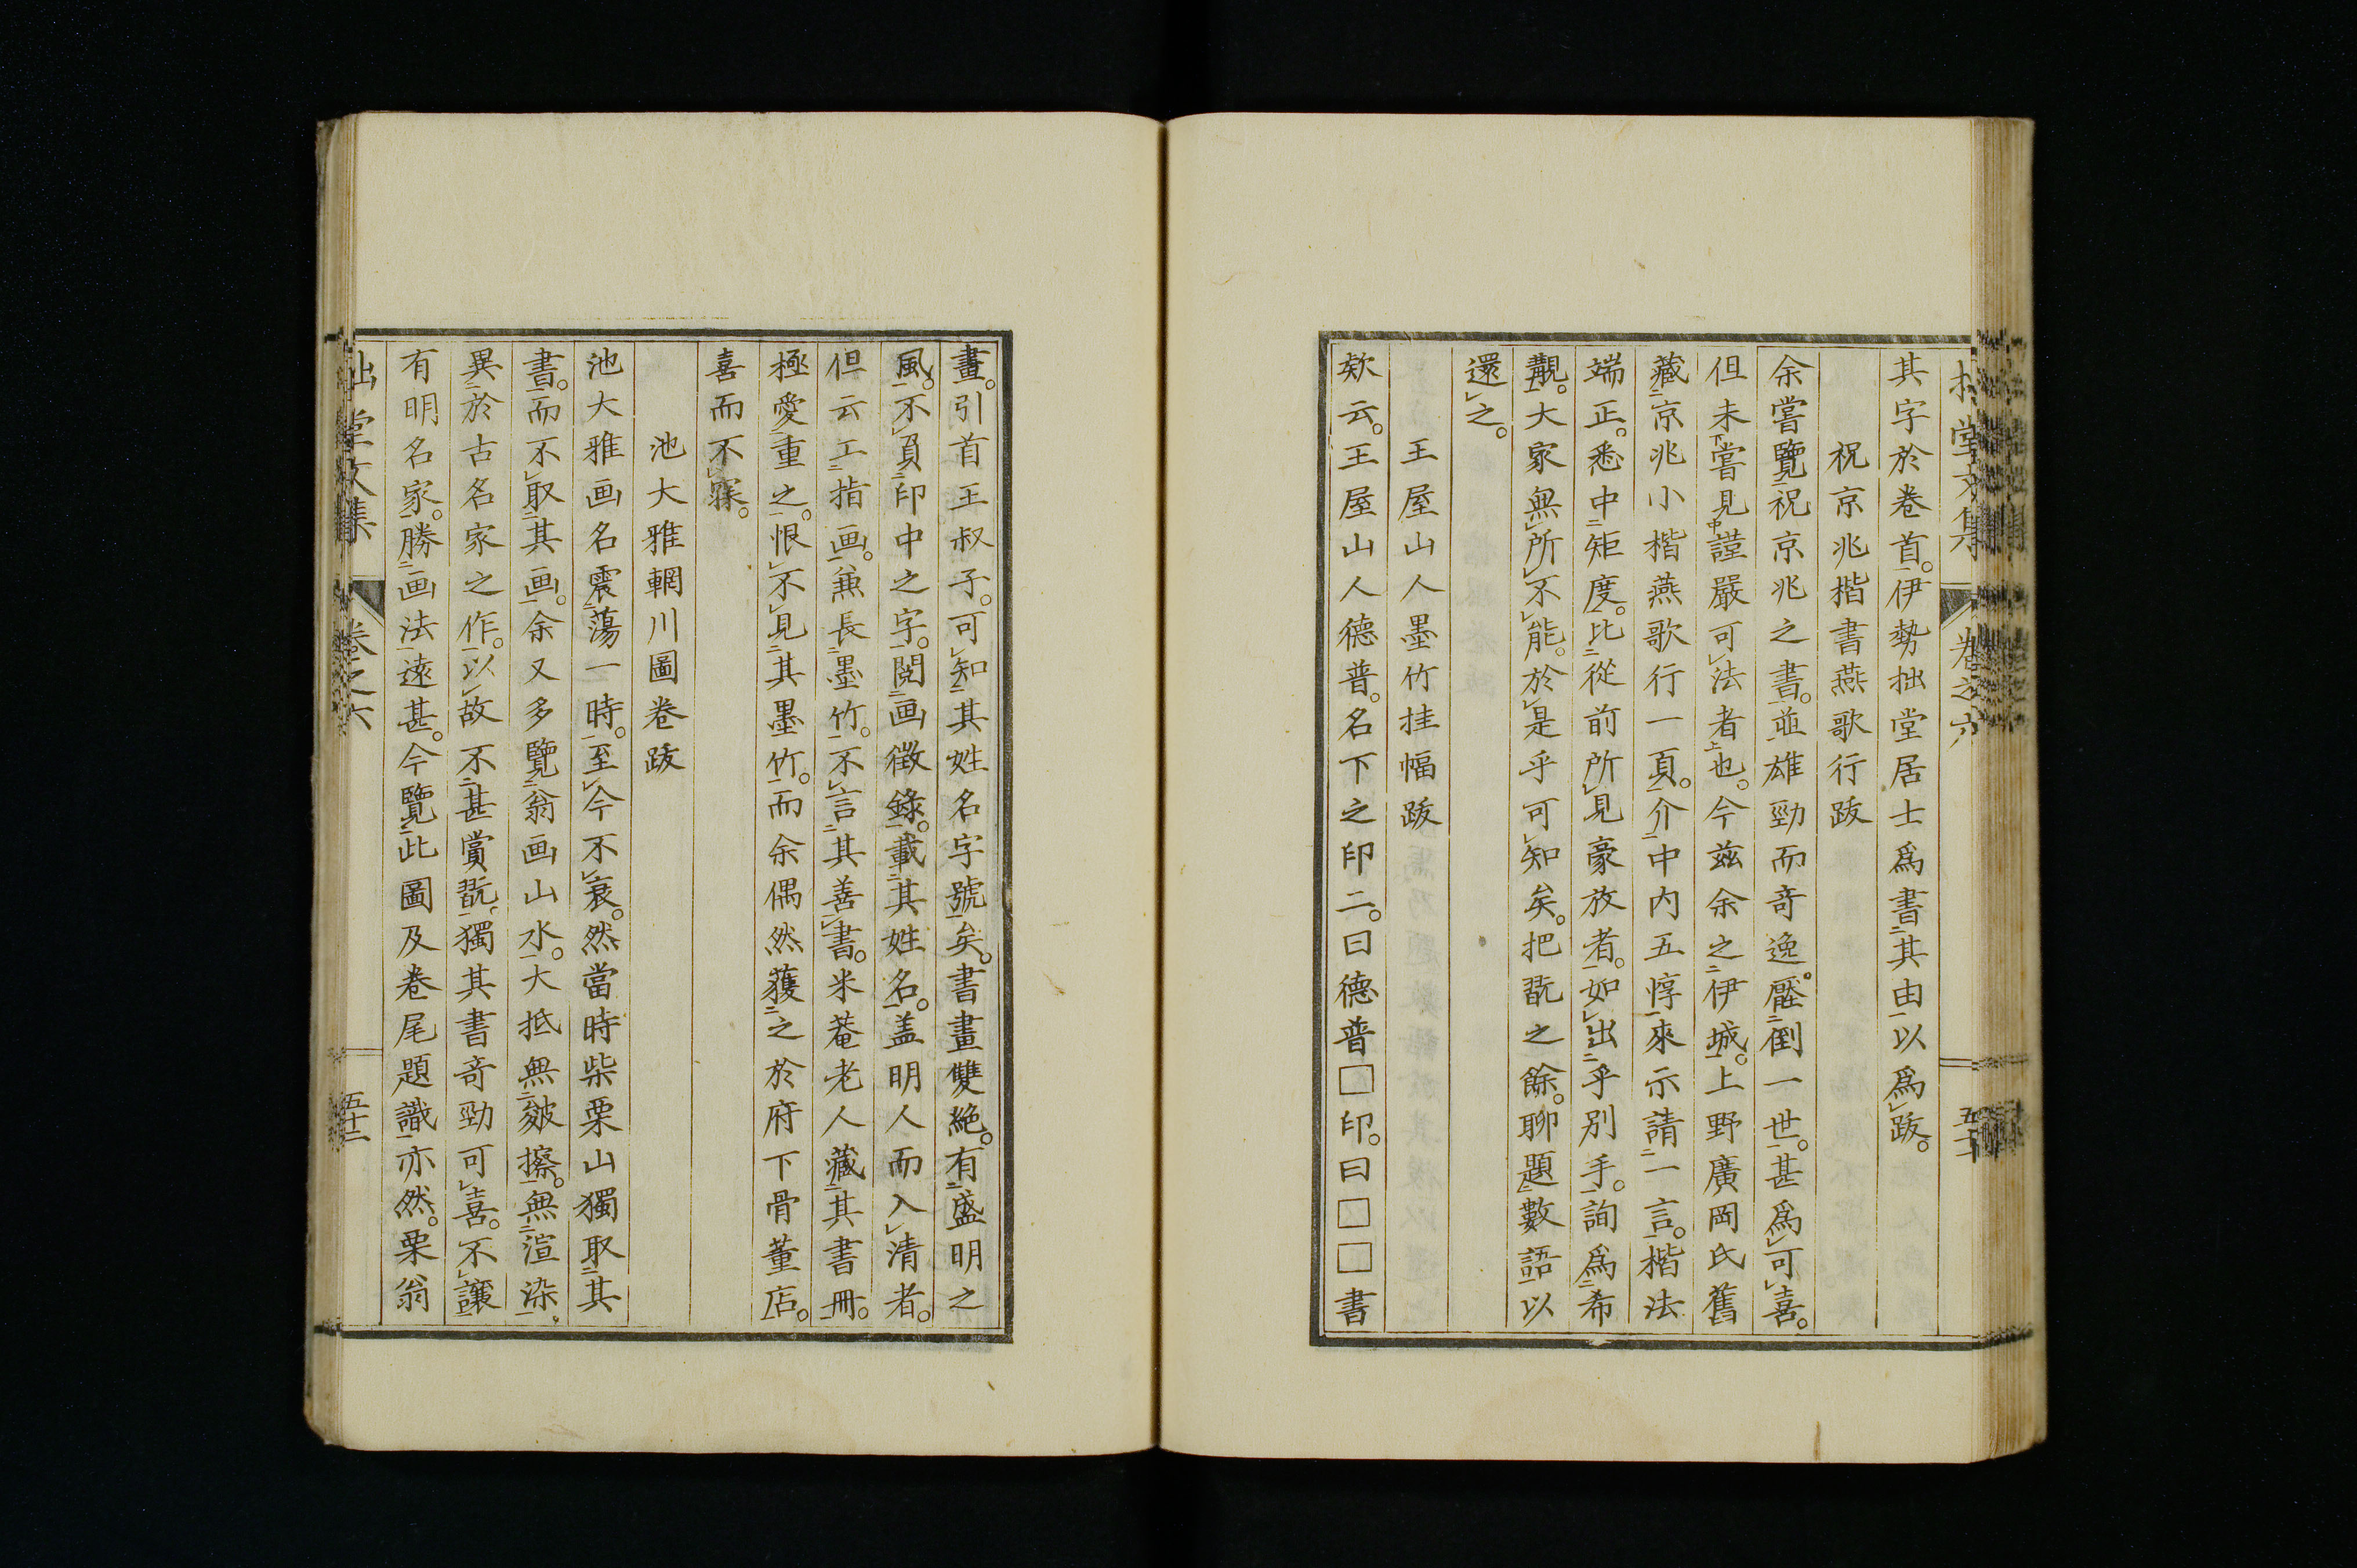 拙堂文集 卷之六
其字於卷首。伊勢拙堂居士爲書其由以爲跋。
祝京兆楷書燕歌行跋
余嘗覽祝京兆之書。並雄勁而奇逸。壓倒一世。甚爲可喜。
但未嘗見謹嚴可法者也。今茲余之伊城。上野廣岡氏舊
藏京兆小楷燕歌行一頁。介中内五惇來示請一言。楷法
端正。悉中矩度。比從前所見豪放者。如出乎別手。詢爲希
覯。大家無所不能。於是乎可知矣。把翫之餘。聊題數語以
還之。
王屋山人墨竹挂幅跋
欵云。王屋山人德普。名下之印二。曰德普□印。曰□□書
畫。引首王叔子。可知其姓名字號矣。書畫雙絶。有盛明之
風。不負印中之字。閲画徵錄。載其姓名。盖明人而入清者。
但云工指画。兼長墨竹。不言其善書。米菴老人藏其書冊。
極愛重之。恨不見其墨竹。而余偶然獲之於府下骨董店。
喜而不寐。
池大雅輞川圖卷跋
池大雅画名震蕩一時。至今不衰。然當時柴栗山獨取其
書。而不取其画。余又多覽翁画山水。大抵無皴擦。無渲染。
異於古名家之作。以故不甚賞翫。獨其書奇勁可喜。不讓
有明名家。勝画法遠甚。今覽此圖及卷尾題識亦然。栗翁
拙堂文集 卷之六 五十二